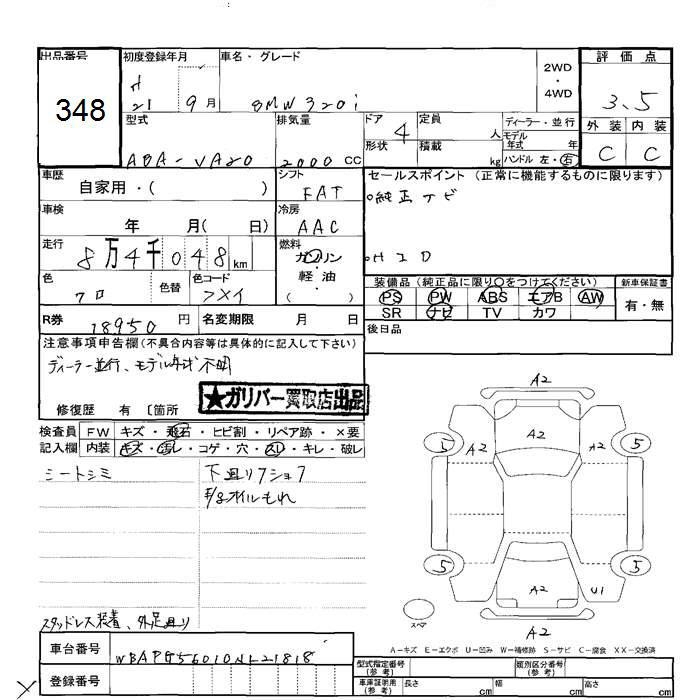 出品番号 初度登録年月 車名・グレード 2WD・4WD 評価点
348
H
21 9月 BMW 320i 3.5
型式 排気量 ドア 4 定員 人 ディーラー・並行 外装 内装
モデル年式 年
ABA-VA20 2000 CC 形状 積載 kg ハンドル 左・右 C C
車歴 シフト セールスポイント(正常に機能するものに限ります)
自家用・( ) FAT ○純正ナビ
車検 冷房
年 月( 日) AAC
走行 燃料 ○HID
8万4千048km ガソリン・軽油
色 色替 色コード ( ) 装備品(純正品に限り○をつけてください) 新車保証書
クロ PS PW ABS エアB AW 有・無
R券 18950円 名変期限 月 日 SR ナビ TV カワ
後日品
注意事項申告欄(不具合内容等は具体的に記入して下さい)
ディーラー並行、モデル年式不明
★ガリバー買取店出品
修復歴 有 〔箇所
検査員記入欄 FW キズ・飛石・ヒビ割・リペア跡・×要
内装 キズ・汚レ・コゲ・穴・スレ・キレ・破レ
シートシミ 下廻りフショク
オイルもれ
A2
A2
5 A2 A2 5
5 5
A2 U1
A2
スペア
スタッドレス装着、外足廻り
A-キズ E-エクボ U-凹み W-補修跡 S-サビ C-腐食 XX-交換済
車台番号 WBAPG56010NL21818
型式指定番号(参考) 類別区分番号(参考)
登録番号 車庫証明用(参考) 長さ cm 幅 cm 高さ cm